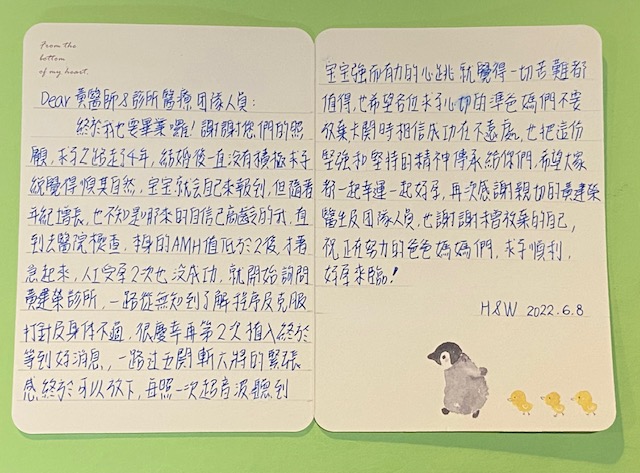 From the
bottom
of my heart.
Dear 黃醫師&診所醫療團隊人員:
終於我也要畢業囉!謝謝您們的照
顧,求子之路走了4年,結婚後一直沒有積極求子
總覺得順其自然,宝宝就会自己來報到,但隨著
年紀增長,也不知是哪來的自信已高齡的我,直
到去醫院檢查,本身的AMH值低於2後,才著
急起來,人工受孕2次也沒成功,就開始詢問
黃建榮診所,一路從無知到了解程序及克服
打針及身体不適,很慶幸再第2次植入終於
等到好消息,一路过五関斬六將的緊張
感終於可以放下,每照一次超音波聽到
宝宝強而有力的心跳就覺得一切苦難都
值得,也希望各位求子心切的準爸媽們不要
放棄卡関時相信成功在不遠處,也把這份
堅強和堅持的精神傳承給你們,希望大家
都一起幸運一起好孕,再次感謝親切的黃建榮
醫生及團隊人員,也謝謝未曾放棄的自己,
祝正在努力的爸爸媽媽們,求子順利,
好孕來臨!
H&W 2022.6.8